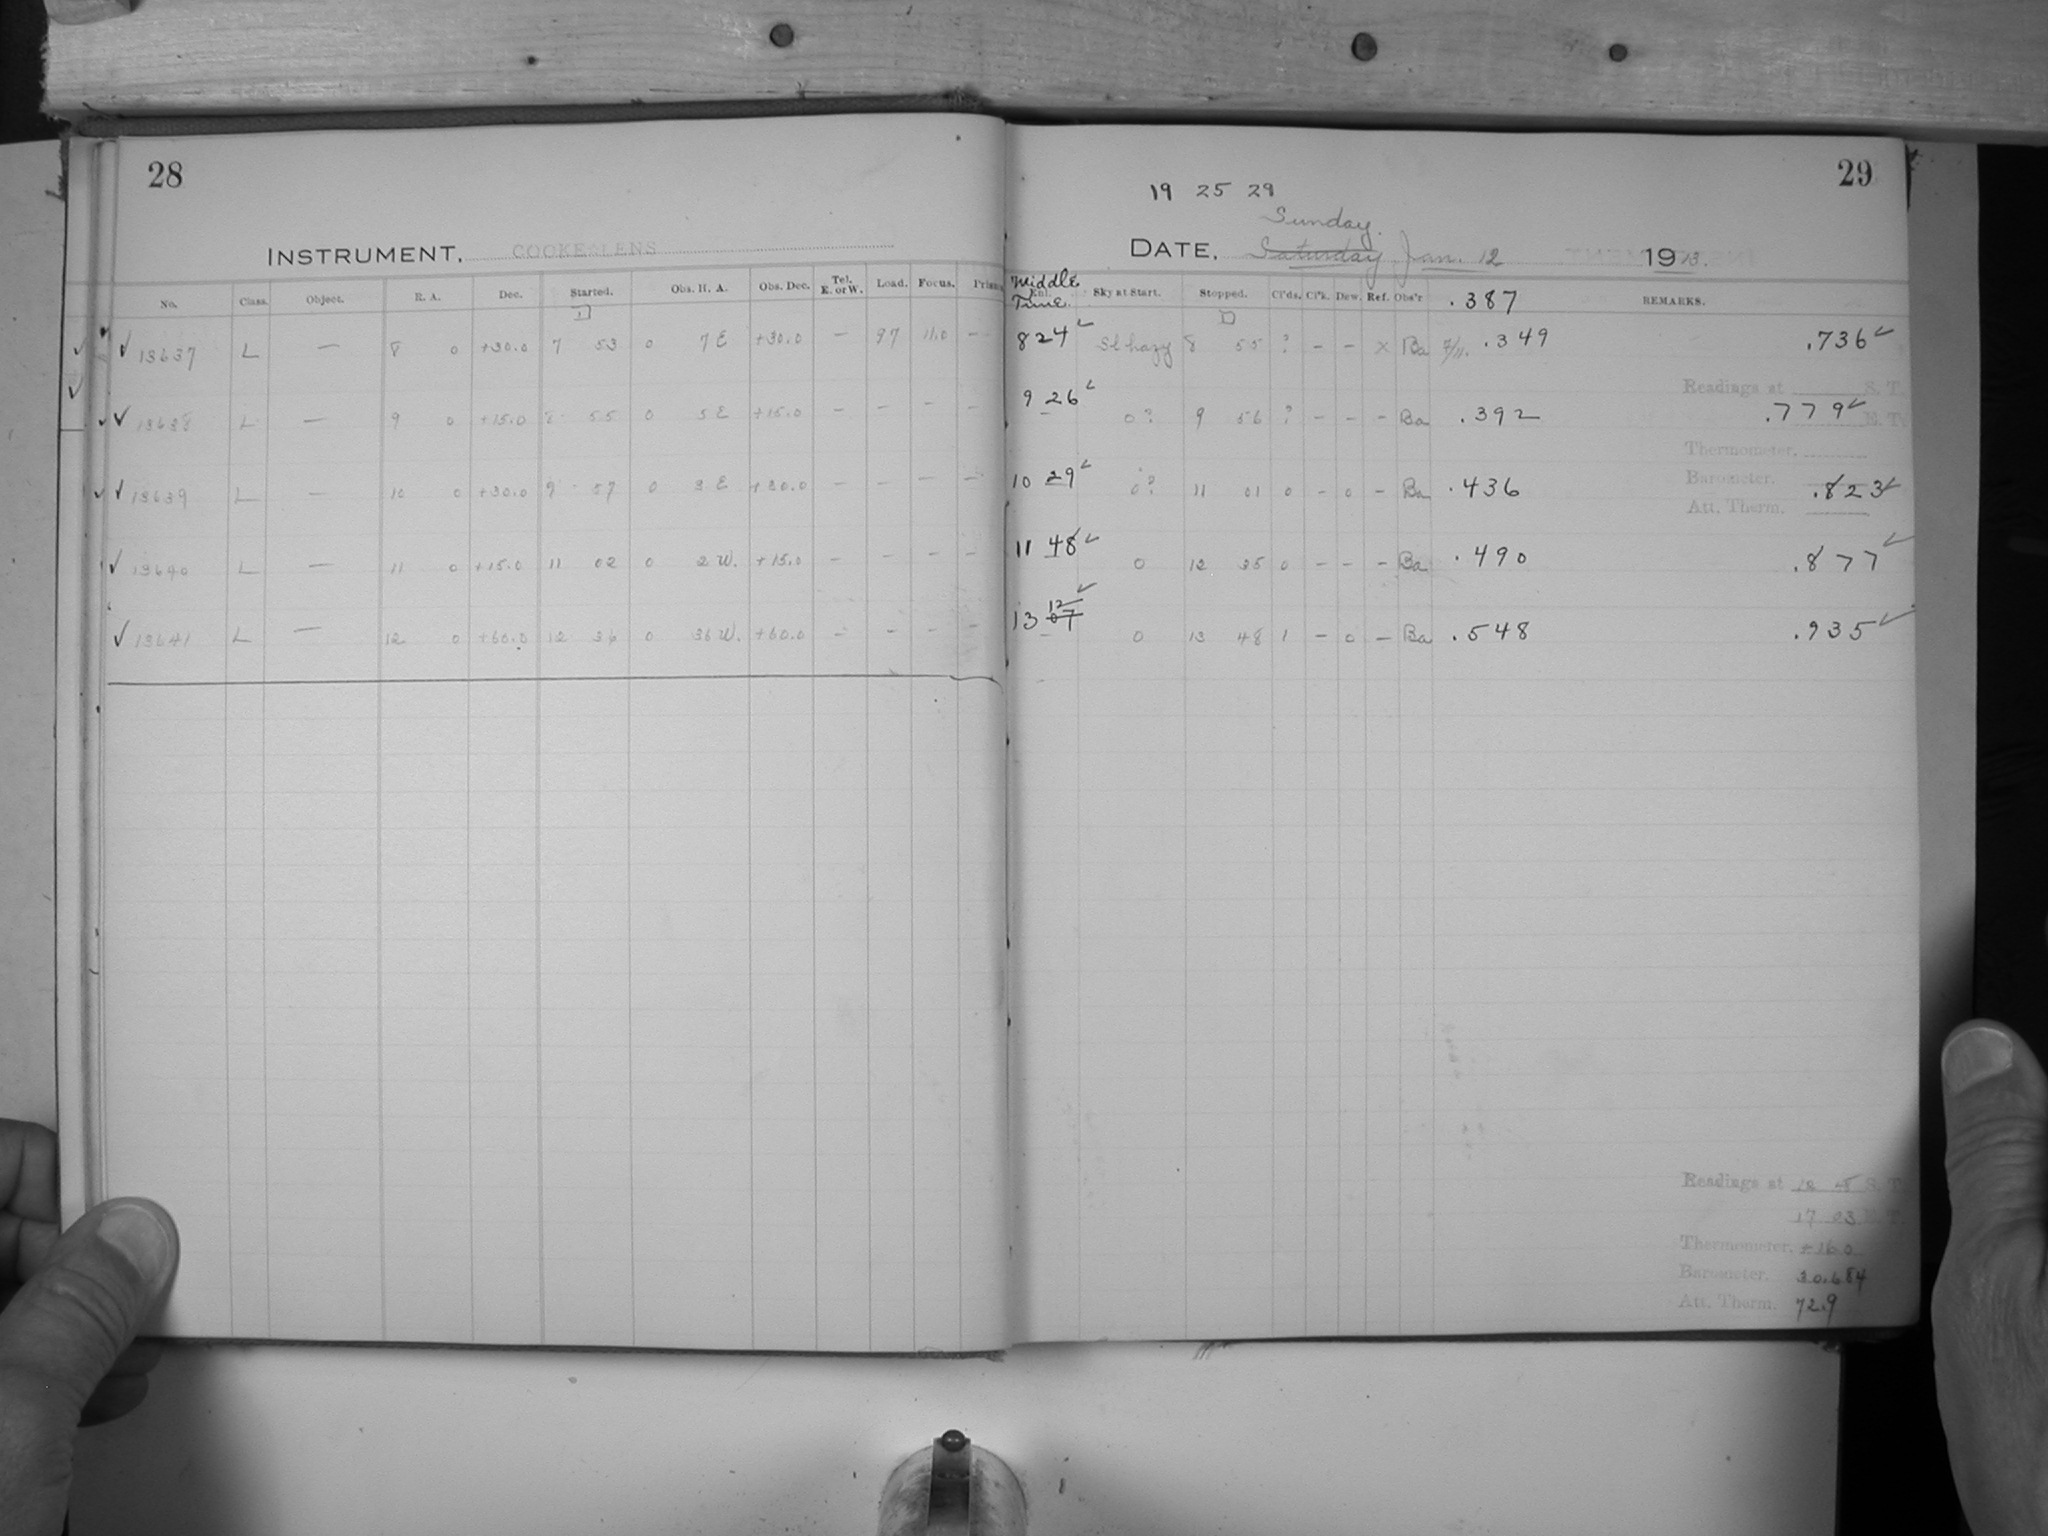 28
INSTRUMENT. COOKE LENS
No. Class. Object. R. A. Dec. Started. Obs. H. A. Obs. Dec. Tel. E. or W. Load. Focus.
13637 L — 8 0 +30.0 7 53 0 7 E +30.0 — 97 11.0 —
13638 L — 9 0 +15.0 8 55 0 5 E +15.0 — — — —
13639 L — 10 0 +30.0 9 57 0 3 E +30.0 — — — —
13640 L — 11 0 +15.0 11 02 0 2 W. +15.0 — — — —
13641 L — 12 0 +60.0 12 36 0 36 W. +60.0 — — — —
29
19 25 29
Sunday.
DATE. Saturday Jan. 12 1913.
Middle Time. Sky at Start. Stopped. Cl'ds. Cl'k. Dew. Ref. Obs'r .387 REMARKS.
8 24 Sl hazy 8 55 ? — — x Ba .349 .736
Readings at S. T.
9 26 0? 9 56 ? — — — Ba .392 .779 E. T.
Thermometer.
Barometer.
10 29 0? 11 01 0 — 0 — Ba .436 .823
Att. Therm.
11 48 0 12 35 0 — — — Ba .490 .877
13 12 07 0 13 48 1 — 0 — Ba .548 .935
Readings at S. T.
17 03
Thermometer. +16.0
Barometer. 30.684
Att. Therm. 72.9